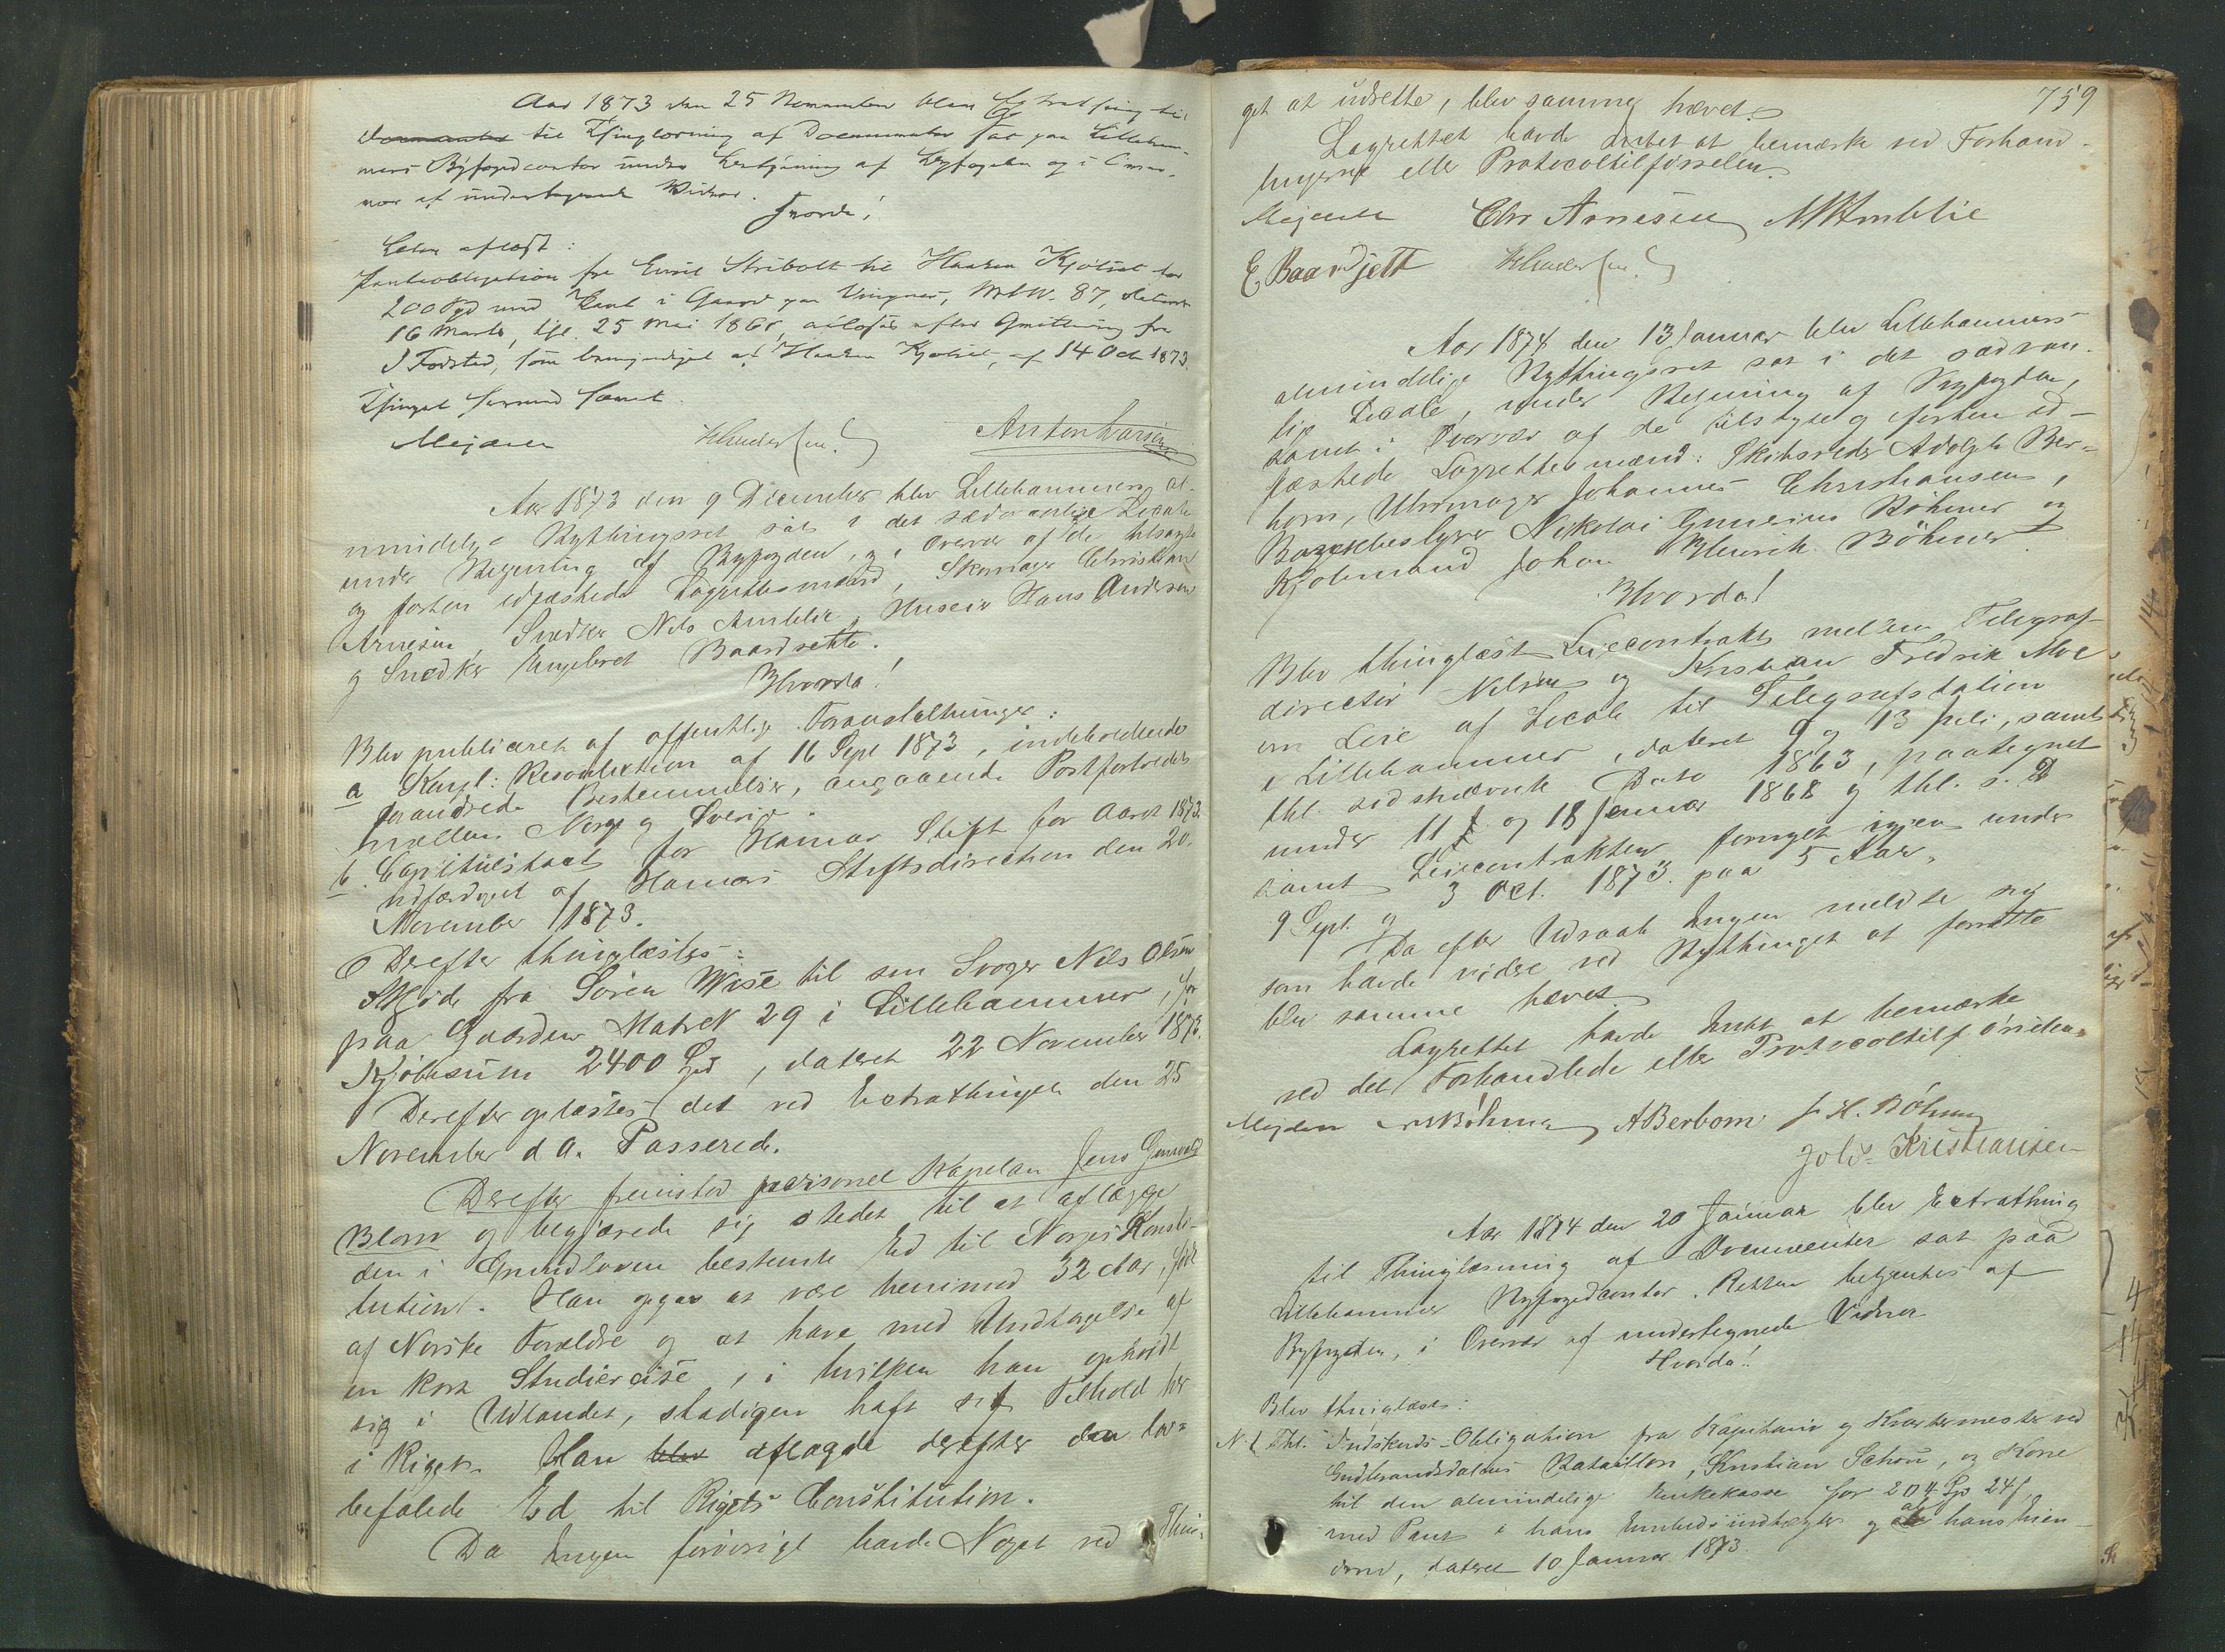 Aar 1873 den 25 November blev Extrathing til
til Thinglæsning af Documenter sat paa Lilleham-
mers Byfogedcontor under Bestyrelse af Byfogden og i Overvær
af undertegnede Vidner.
Hvorda!
Blev aflæst:
Panteobligation fra Emil Stribolt til Haaken Kjølset for
200 Spd med Pant i Gaard paa Vingnes, Mt N. 87, dateret
16 Marts, tgl. 25 Mai 186, aflæses efter Qvittering fra
J Fodstad, som bemyndiget af Haaken Kjølset, af 14 Oct 1873.
Thinget hævedes samt.
Mejdell Anton Larsen
Aar 1873 den 9 December blev Lillehammers al-
mindelige Bythingsret sat i det sædvanlige Locale
under Bestyrelse af Byfogden, og i Overvær af de tilsagte
og forhen edfæstede Lagrettesmænd, Skomager Christian
Arnesen, Snedker Nils Amblie, Huseier Hans Andersen
og Snedker Engebret Baardsette.
Hvorda!
Blev publiceret af offentlige Foranstaltninger:
a Kongl: Resolution af 16 Sept 1873, indeholdende
forandrede Bestemmelser, angaaende Postforbindelse
mellem Norge og Sverige.
b. Capitelstaxt for Hamar Stift for Aaret 1873.
udfærdiget af Hamars Stiftsdirection den 20.
November 1873.
Derefter thinglæstes:
Skjøde fra Søren Wise til sin Svoger Nils Olsen
paa Gaarden Matr N 29 i Lillehammer, for
Kjøbesum 2400 Spd, dateret 22 November 1873.
Derefter oplæstes det ved Extrathinget den 25
November d A. Passerede.
Derefter fremstod personel Kapelan Jens Grønvold
Blom og begjærede sig stedet til at aflægge
den i Grundloven bestemte Ed til Norges Konsti-
tution. Han opgav at være henimod 32 Aar, født
af Norske Forældre og at have med Undtagelse af
en kort Studiereise, i hvilken han opholdt
sig i Udlandet, stadigen haft sit Tilhold her
i Riget. Han blev aflagde derefter den lov-
befalede Ed til Rigets Constitution.
Da Ingen forøvrigt havde Noget ved Thin-
759
get at udrette, blev samme hævet.
Lagrettet havde Intet at bemærke ved Forhand-
lingerne eller Protocoltilførselen.
Mejdell Chr Arnesen N Amblie
E Baardsett H Andersen
Aar 1874 den 13 Januar blev Lillehammers
almindelige Bythingsret sat i det sædvan-
lige Locale, under Bestyrelse af Byfogden,
samt i Overvær af de tilsagte og forhen ed-
fæstede Lagrettesmænd: Skibsreder Adolph Ber-
bom, Uhrmager Johannes Christiansen,
Bagerbestyrer Nikolai Böhmer og
Kjøbmand Johan Henrik Böhmer.
Hvorda!
Blev thinglæst Leiecontrakt mellem Telegraf-
directør Nilsen og Kristian Fredrik Moe
om Leie af Locale til Telegrafstation
i Lillehammer, dateret 9 og 13 Juli, samt
thl. sidstnævnte Dato 1863, paategnet
under 11 og 18 Januar 1868 og thl. s. D
samt Leiecontrakten fornyet igjen under
9 Sept og 3 Oct. 1873. paa 5 Aar.
Da efter Udraab Ingen meldte sig
som havde videre ved Bythinget at forrette
blev samme hævet.
Lagrettet havde Intet at bemærke
ved det Forhandlede eller Protocoltilførselen.
Mejdell Böhmer A Berbom J. H. Böhmer
Johs Kristiansen
Aar 1874 den 20 Januar blev Extrathing
til Thinglæsning af Documenter sat paa
Lillehammer Byfogedcontor. Retten betjentes af
Byfogden, i Overvær af undertegnede Vidner
Hvorda!
Blev thinglæst:
N. 1 Thl. Indskuds-Obligation fra Kapitain og Kvartermester ved
Gudbrandsdalens Batallion, Kristian Schou, og Kone
til den almindelige Enkekasse for 204 Spd 24 s,
med Pant i hans Embedsindtægter og al hans Eien-
dom, dateret 10 Januar 1873.